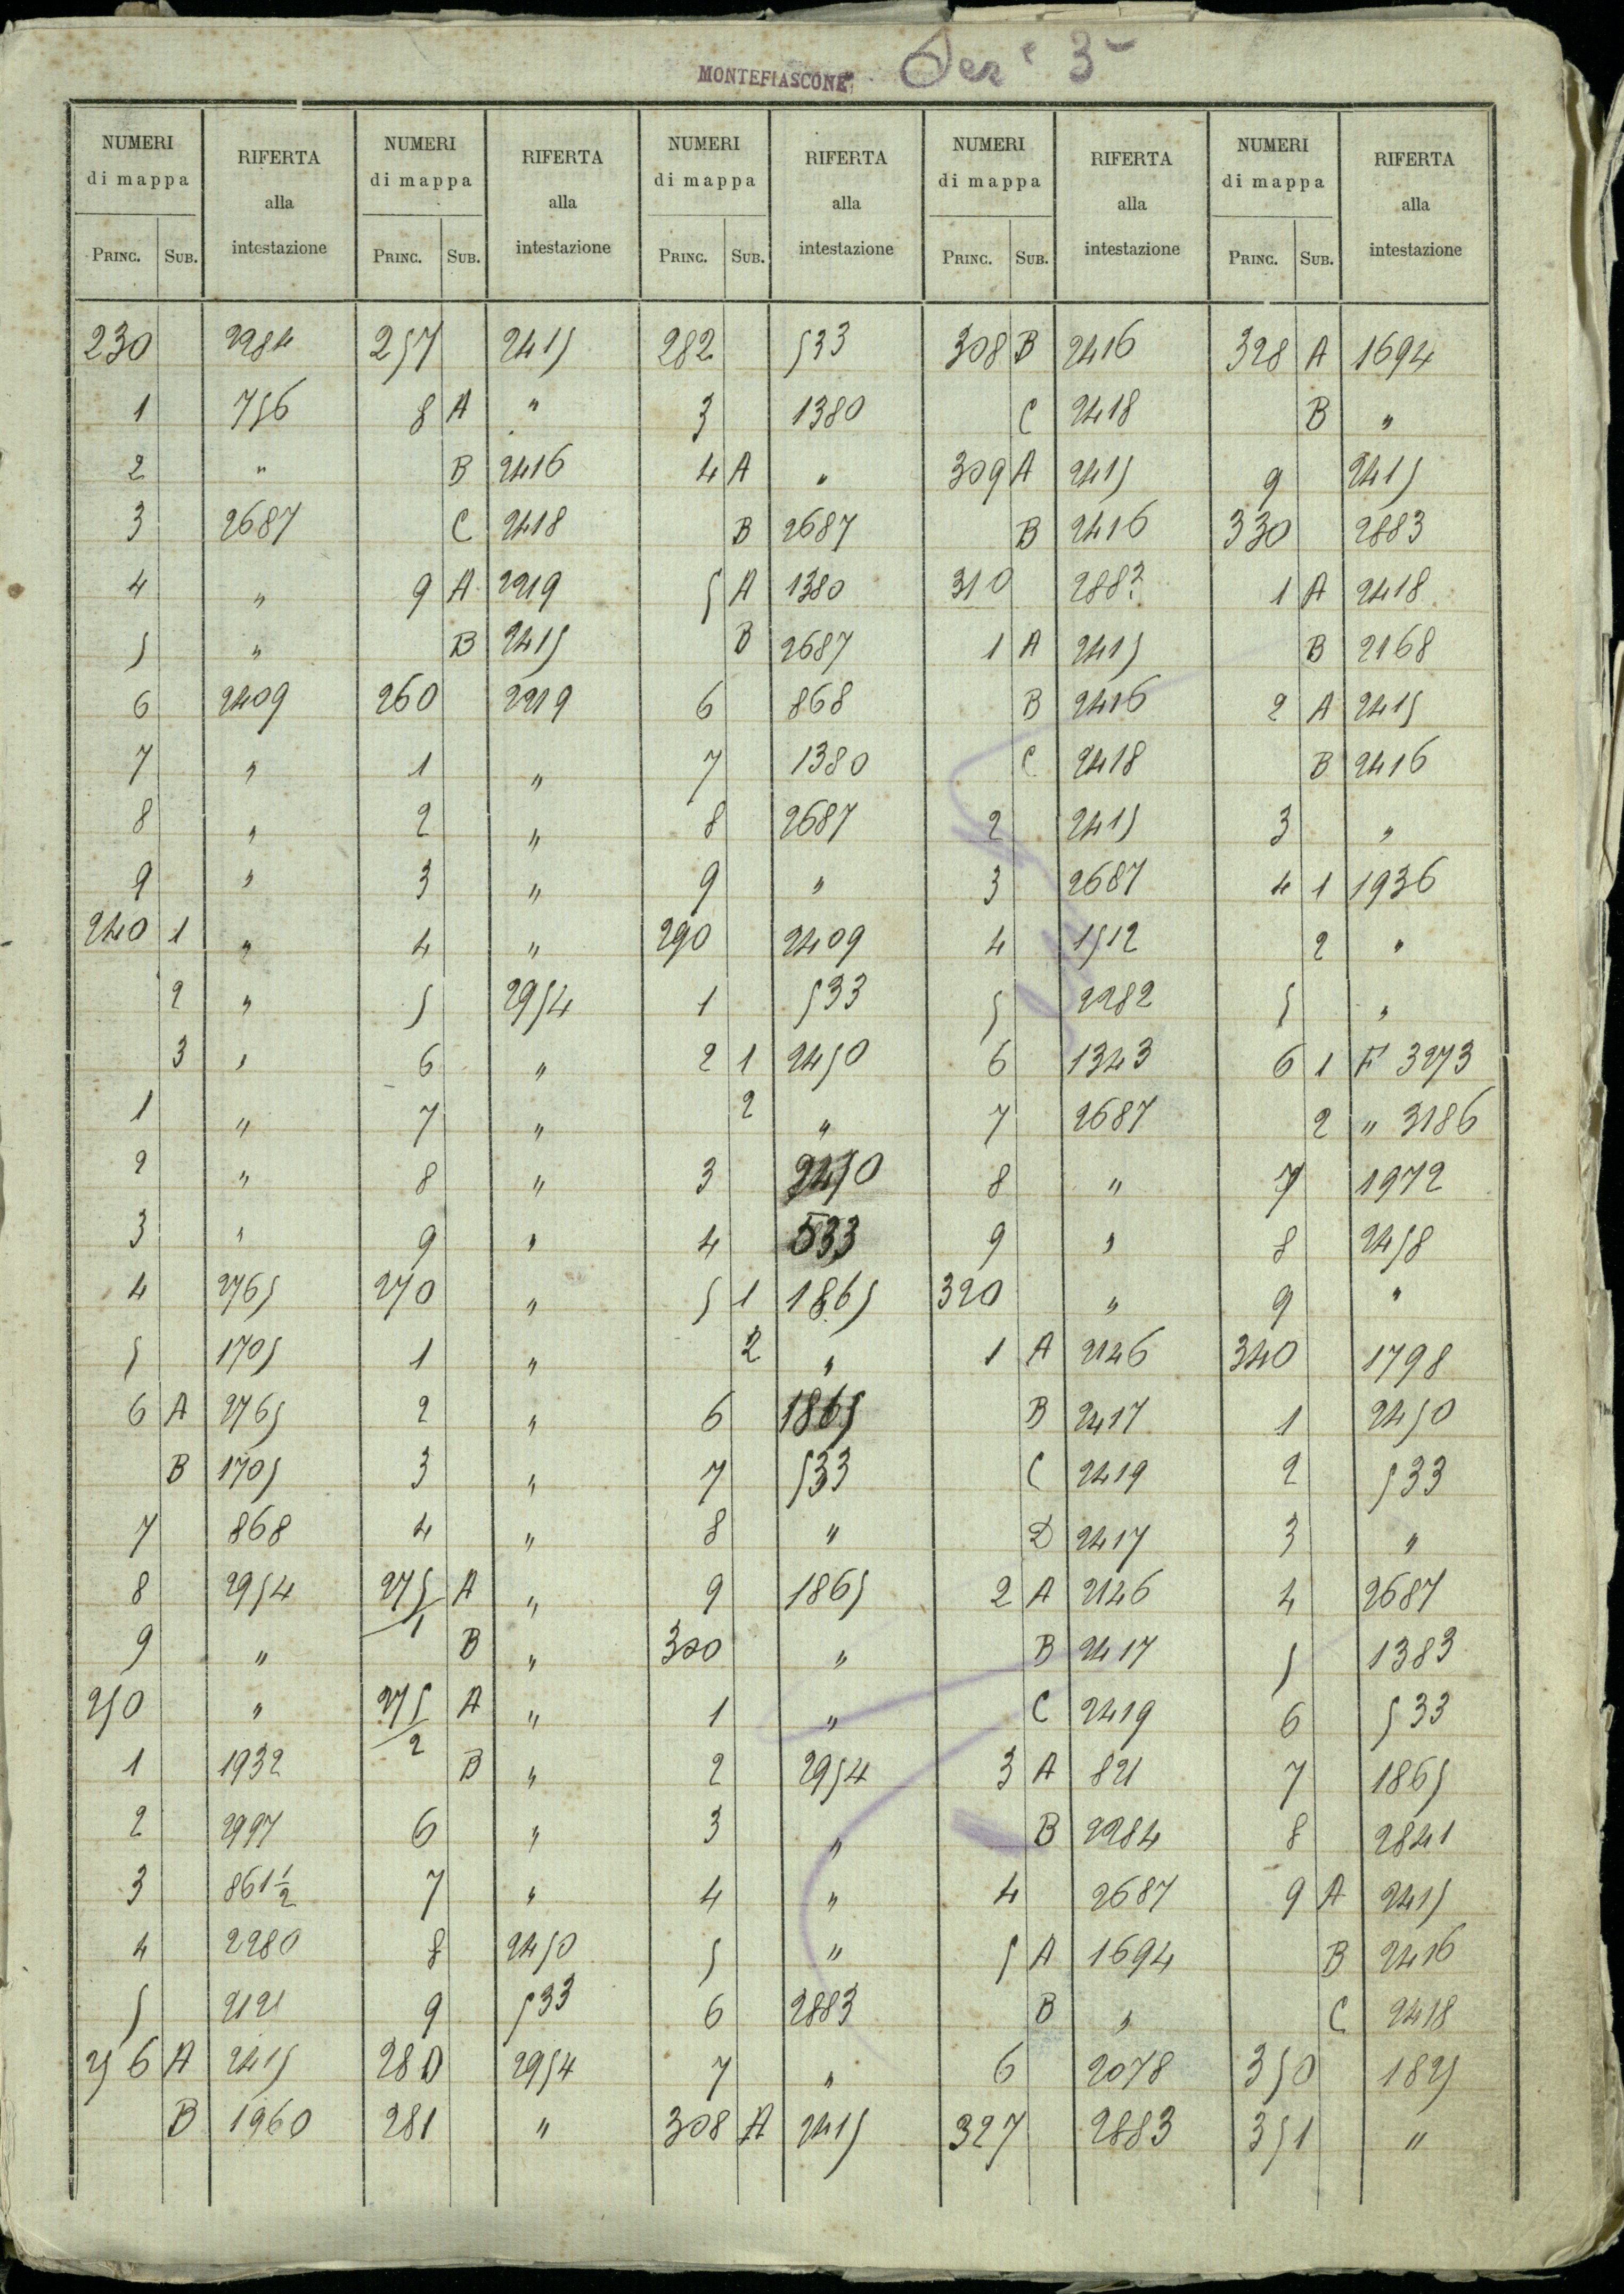 MONTEFIASCONE. Sez.e 3a
NUMERI di mappa RIFERTA alla intestazione NUMERI di mappa RIFERTA alla intestazione NUMERI di mappa RIFERTA alla intestazione NUMERI di mappa RIFERTA alla intestazione NUMERI di mappa RIFERTA alla intestazione
PRINC. SUB. PRINC. SUB. PRINC. SUB. PRINC. SUB. PRINC. SUB.
230 2284 257 2415 282 533 308 B 2416 328 A 1694
1 756 8 A " 3 1380 C 2418 B "
2 " B 2416 4 A " 309 A 2415 9 2415
3 2687 C 2418 B 2687 B 2416 330 2883
4 " 9 A 2219 5 A 1380 310 2883 1 A 2418
5 " B 2415 B 2687 1 A 2415 B 2168
6 2409 260 2219 6 868 B 2416 2 A 2415
7 " 1 " 7 1380 C 2418 B 2416
8 " 2 " 8 2687 2 2415 3 "
9 " 3 " 9 " 3 2687 4 1 1936
240 1 " 4 " 290 2409 4 1512 2 "
2 " 5 2954 1 533 5 2282 5 "
3 " 6 " 2 1 2450 6 1343 6 1 F 3273
1 " 7 " 2 " 7 2687 2 " 3186
2 " 8 " 3 2450 8 " 7 1972
3 " 9 " 4 533 9 " 8 2458
4 2765 270 " 5 1 1865 320 " 9 "
5 1705 1 " 2 " 1 A 2146 340 1798
6 A 2765 2 " 6 1865 B 2417 1 2450
B 1705 3 " 7 533 C 2419 2 533
7 868 4 " 8 " D 2417 3 "
8 2954 275/1 A " 9 1865 2 A 2146 4 2687
9 " B " 300 " B 2417 5 1383
250 " 275/2 A " 1 " C 2419 6 533
1 1932 B " 2 2954 3 A 821 7 1865
2 2997 6 " 3 " B 2284 8 2841
3 861 1/2 7 " 4 " 4 2687 9 A 2415
4 2280 8 2450 5 " 5 A 1694 B 2416
5 2121 9 533 6 2883 B " C 2418
256 A 2415 280 2954 7 " 6 2078 350 1825
B 1960 281 " 308 A 2415 327 2883 351 "